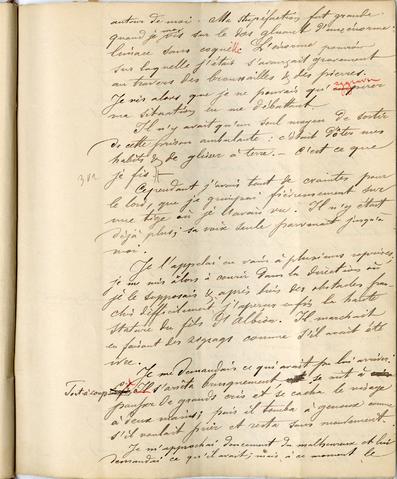 autour de moi. Ma stupéfaction fut grande
quand je me vis sur le dos gluant d'une énorme
limace sans coquille. L'énorme
sur laquelle j'étais s'avançait gravement
au travers des broussailles & des pierres.
Je vis alors que je ne pouvais qu'aggraver
ma situation en me débattant.
Il n'y avait qu'un seul moyen de sortir
de cette prison ambulante: c'était d'ôter mes
habits & de glisser à terre. — C'est ce que
je fis.
Cependant j'avais tout de craintes pour
le lois, que je grimpai sur
une tige où je l'avais vu. Il n'y était
déjà plus; sa voix seule parvenait jusqu'à
moi.
Je l'appelai en vain à plusieurs reprises,
je me mis alors à courir dans la direction où
je le supposais & après bien des obstacles fran-
chis difficilement j'aperçus enfin la haute
stature du fils d'Albion. Il marchait
en faisant des zigzags comme s'il avait été
ivre.
Je me demandais ce qui avait pu lui arriver.
Tout à coup Il s'arrêta brusquement se mit à
pousser de grands cris et se cacha le visage
à deux mains; puis il tomba à genoux comme
s'il voulait prier et resta sans mouvement.
Je m'approchai doucement du malheureux et lui
demandai ce qu'il avait; mais à ce moment le